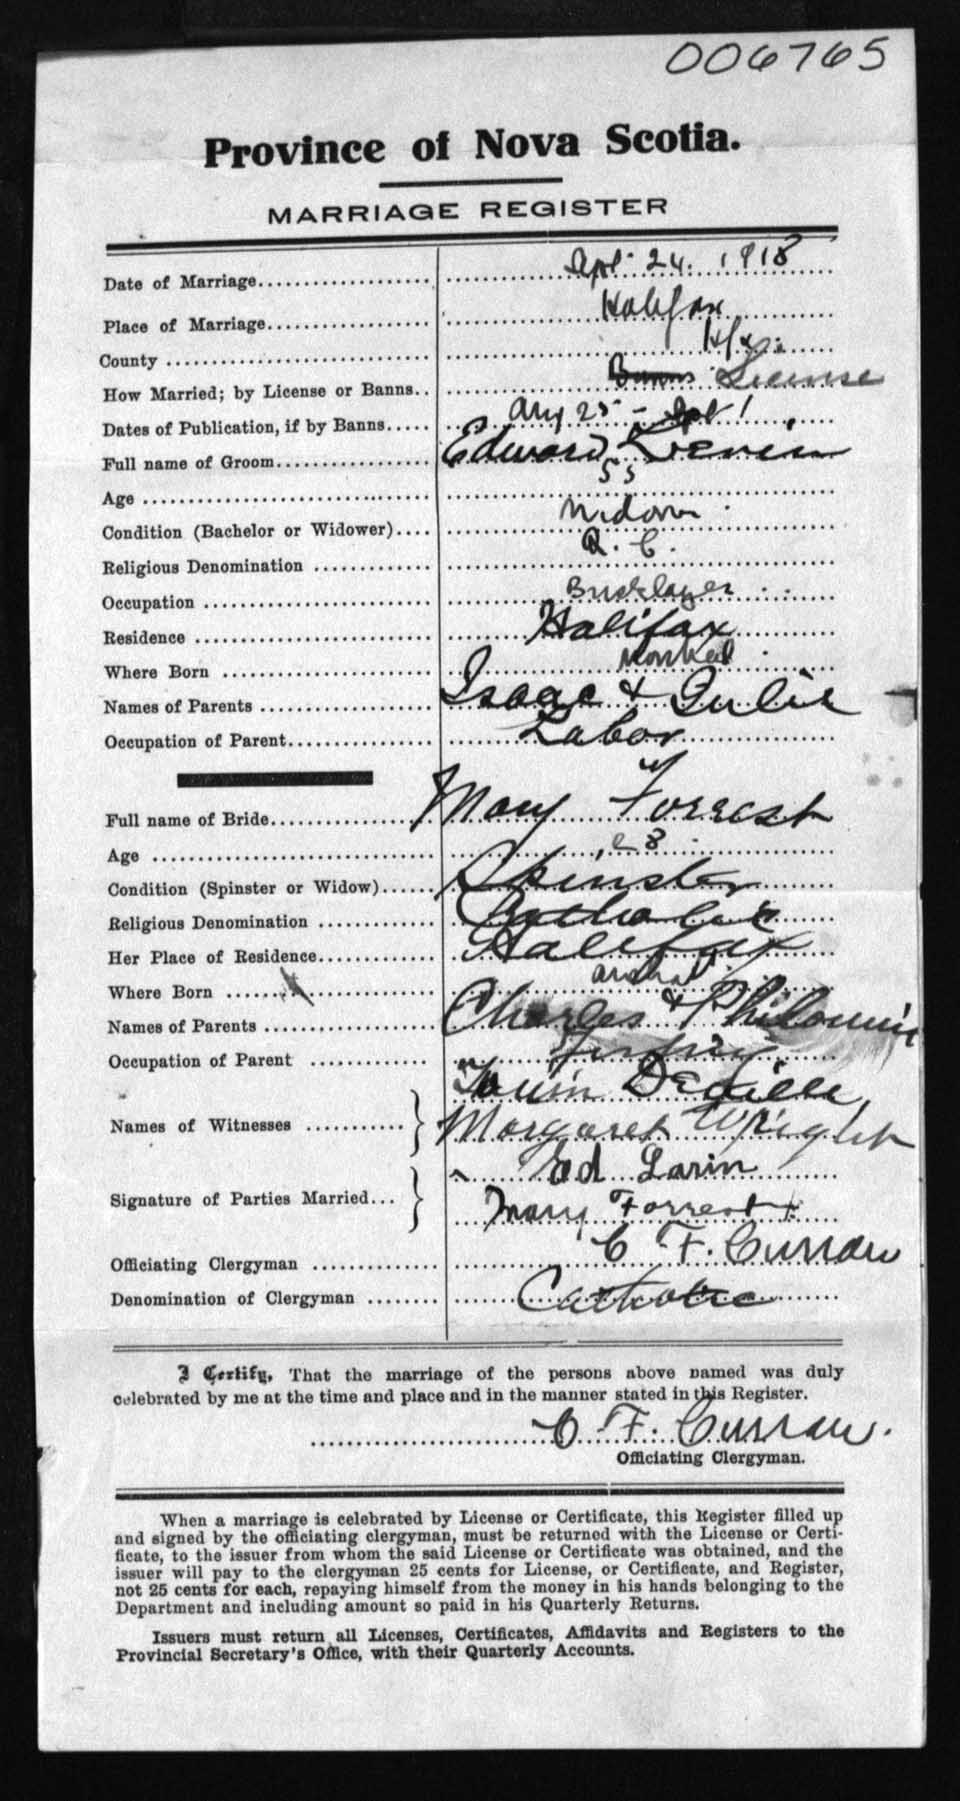 006765
Province of Nova Scotia.
MARRIAGE REGISTER
Date of Marriage 24. 1918
Place of Marriage Halifax
County Hfx.
How Married; by License or Banns Banns License
Dates of Publication, if by Banns Aug 25 - 1
Full name of Groom Edward
Age 55
Condition (Bachelor or Widower) Widower
Religious Denomination R. C.
Occupation Bricklayer
Residence Halifax
Where Born Montreal
Names of Parents Isaac & Julie
Occupation of Parent Labor
Full name of Bride Mary Forrest
Age 28
Condition (Spinster or Widow) Spinster
Religious Denomination Catholic
Her Place of Residence Halifax
Where Born
Names of Parents Charles & Philomin
Occupation of Parent
Names of Witnesses
Margaret Wright
Signature of Parties Married Ed Larin
Mary Forrest
Officiating Clergyman C F. Curran
Denomination of Clergyman Catholic
I Certify, That the marriage of the persons above named was duly
celebrated by me at the time and place and in the manner stated in this Register.
C. F. Curran.
Officiating Clergyman.
When a marriage is celebrated by License or Certificate, this Register filled up
and signed by the officiating clergyman, must be returned with the License or Certi-
ficate, to the issuer from whom the said License or Certificate was obtained, and the
issuer will pay to the clergyman 25 cents for License, or Certificate, and Register,
not 25 cents for each, repaying himself from the money in his hands belonging to the
Department and including amount so paid in his Quarterly Returns.
Issuers must return all Licenses, Certificates, Affidavits and Registers to the
Provincial Secretary's Office, with their Quarterly Accounts.